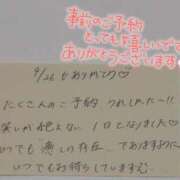 事前のご予約
とっても嬉しいです
ありがとうございます
9/26 も ありがとう♡
たくさんの ご予約 うれしかった〜!!
笑いが絶えない 1日となりました
いつでも 癒しの存在、でありますように
いつでもお待ちしています